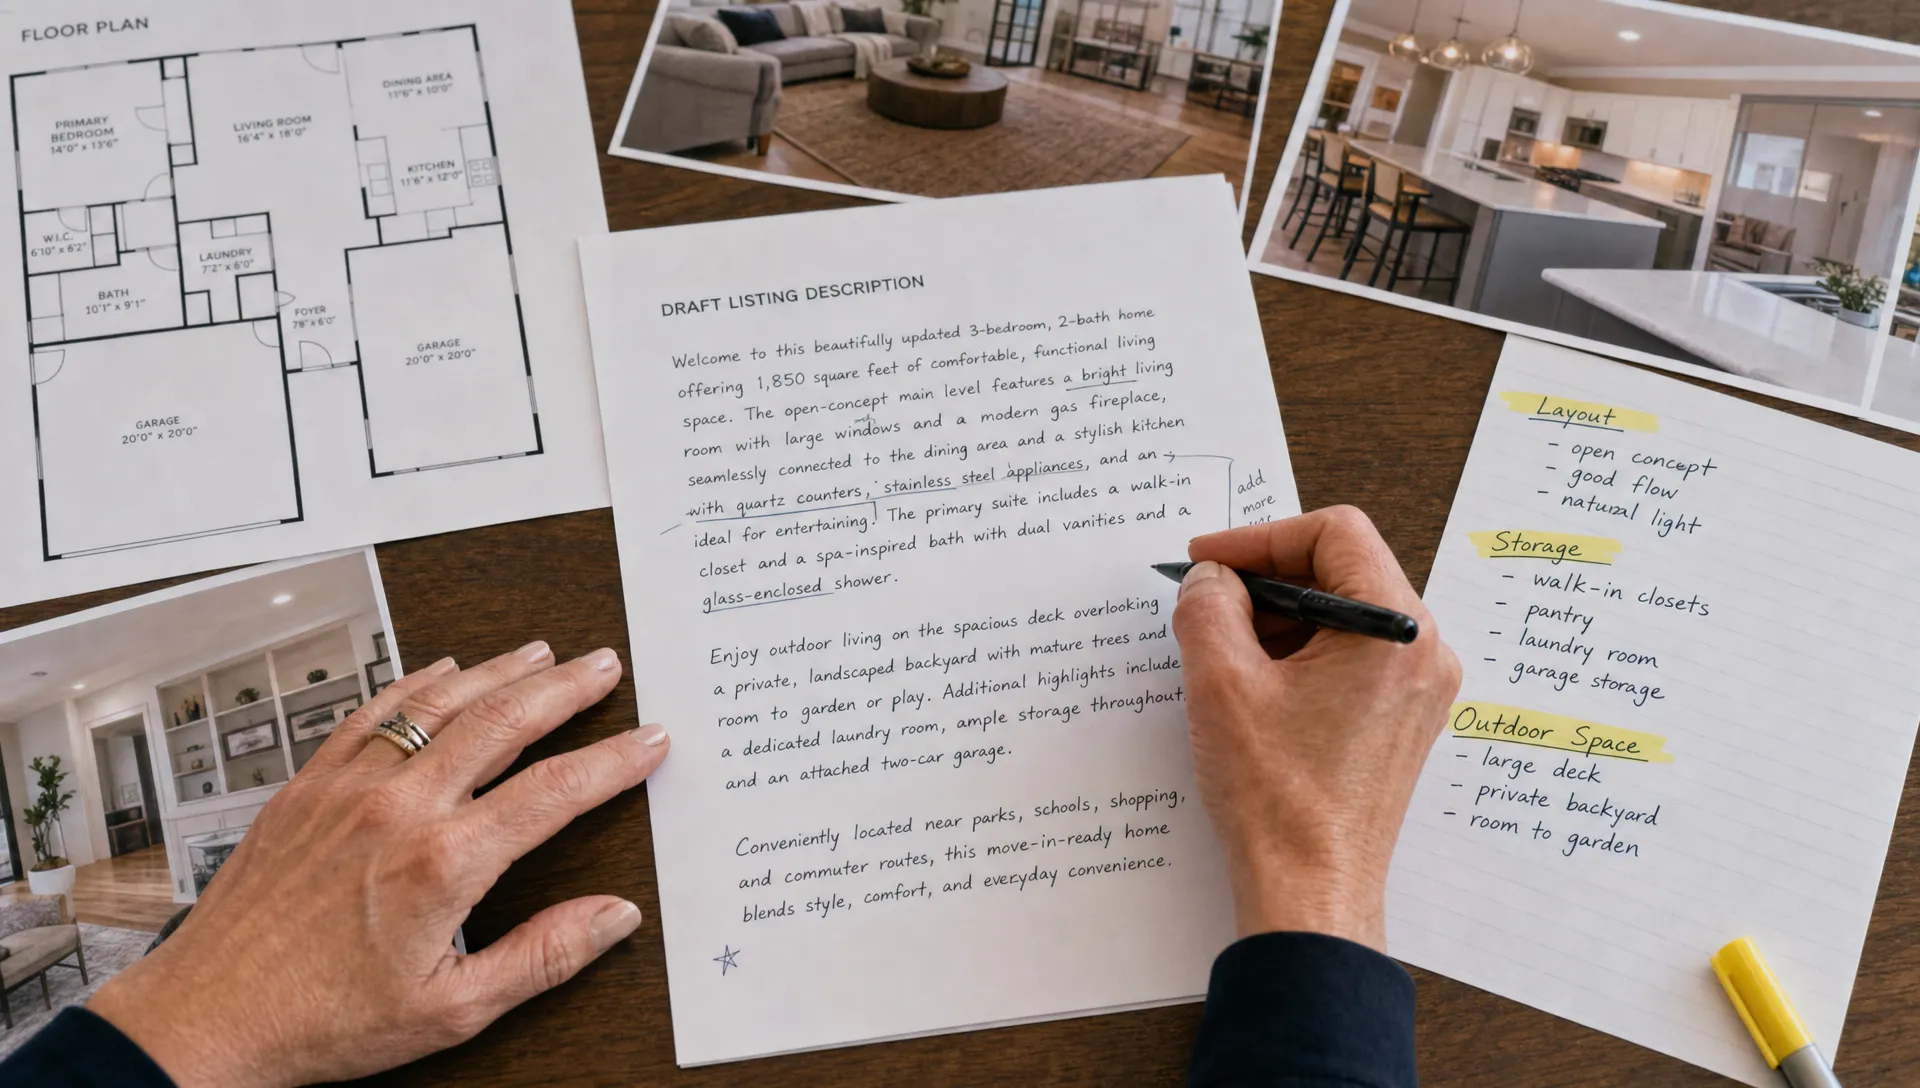 FLOOR PLAN
PRIMARY
BEDROOM
14'0" x 13'6"
LIVING ROOM
16'4" x 18'0"
DINING AREA
11'6" x 10'0"
KITCHEN
11'6" x 12'0"
W.I.C.
6'10" x 6'2"
LAUNDRY
7'2" x 6'0"
BATH
10'1" x 9'1"
FOYER
7'8" x 6'0"
GARAGE
20'0" x 20'0"
GARAGE
20'0" x 20'0"
DRAFT LISTING DESCRIPTION
Welcome to this beautifully updated 3-bedroom, 2-bath home
offering 1,850 square feet of comfortable, functional living
space. The open-concept main level features a bright living
room with large windows and a modern gas fireplace,
seamlessly connected to the dining area and a stylish kitchen
with quartz counters, stainless steel appliances, and an →
ideal for entertaining. The primary suite includes a walk-in
closet and a spa-inspired bath with dual vanities and a
glass-enclosed shower.
Enjoy outdoor living on the spacious deck overlooking
a private, landscaped backyard with mature trees and
room to garden or play. Additional highlights include
a dedicated laundry room, ample storage throughout,
and an attached two-car garage.
Conveniently located near parks, schools, shopping,
and commuter routes, this move-in-ready home
blends style, comfort, and everyday convenience.
add
more
Layout
- open concept
- good flow
- natural light
Storage
- walk-in closets
- pantry
- laundry room
- garage storage
Outdoor Space
- large deck
- private backyard
- room to garden